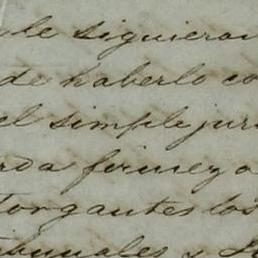 le siguieran
de haberlo co
el simple jura
rda firmeza
torgantes los
ibunales y Ju